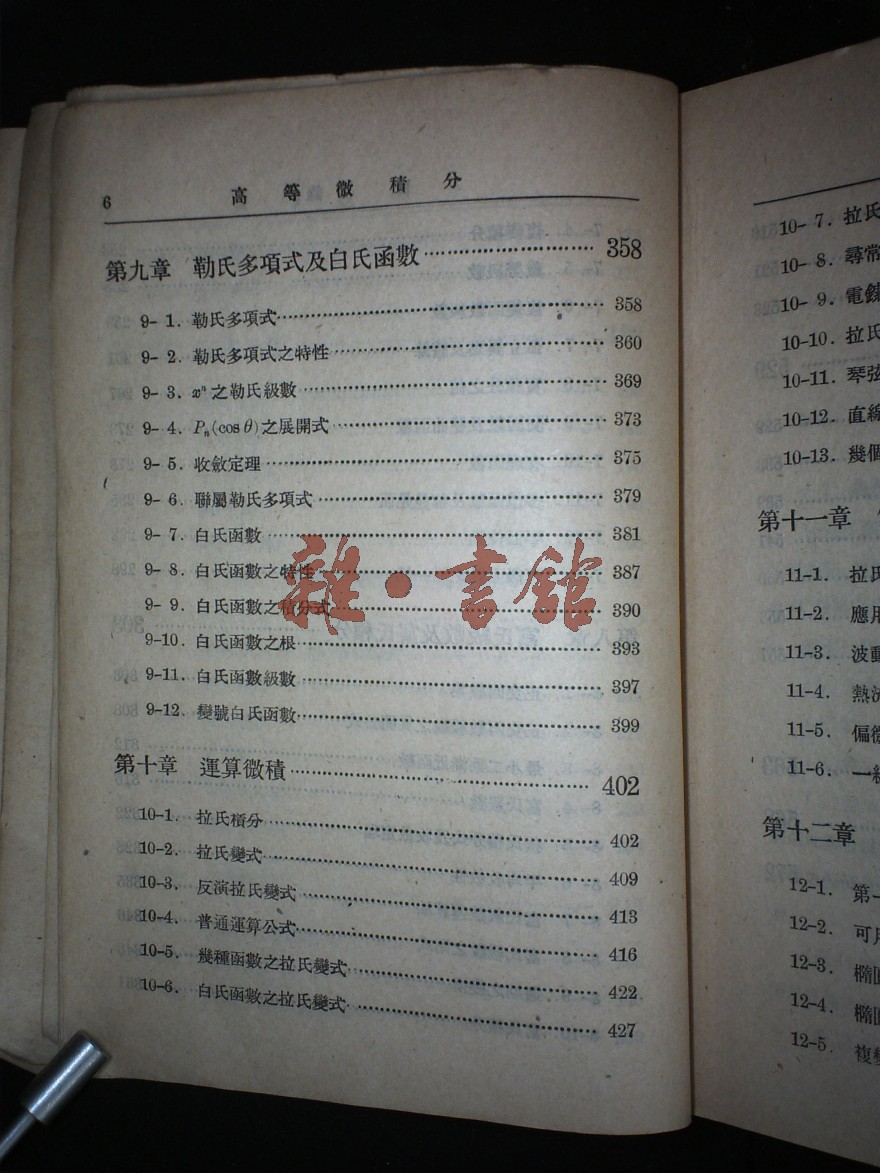 6 高等微積分
第九章 勒氏多項式及白氏函數 358
9- 1. 勒氏多項式 358
9- 2. 勒氏多項式之特性 360
9- 3. xⁿ之勒氏級數 369
9- 4. Pₙ(cos θ)之展開式 373
9- 5. 收斂定理 375
9- 6. 聯屬勒氏多項式 379
9- 7. 白氏函數 381
9- 8. 白氏函數之特性 387
9- 9. 白氏函數之積分式 390
9-10. 白氏函數之根 393
9-11. 白氏函數級數 397
9-12. 變號白氏函數 399
第十章 運算微積 402
10-1. 拉氏積分 402
10-2. 拉氏變式 409
10-3. 反演拉氏變式 413
10-4. 普通運算公式 416
10-5. 幾種函數之拉氏變式 422
10-6. 白氏函數之拉氏變式 427
雜·書館
10- 7. 拉氏
10- 8. 尋常
10- 9. 電
10-10. 拉氏
10-11. 琴弦
10-12. 直線
10-13. 幾個
第十一章
11-1. 拉氏
11-2. 應用
11-3. 波動
11-4. 熱流
11-5. 偏微
11-6. 一
第十二章
12-1. 第
12-2. 可
12-3. 橢
12-4. 橢
12-5. 複